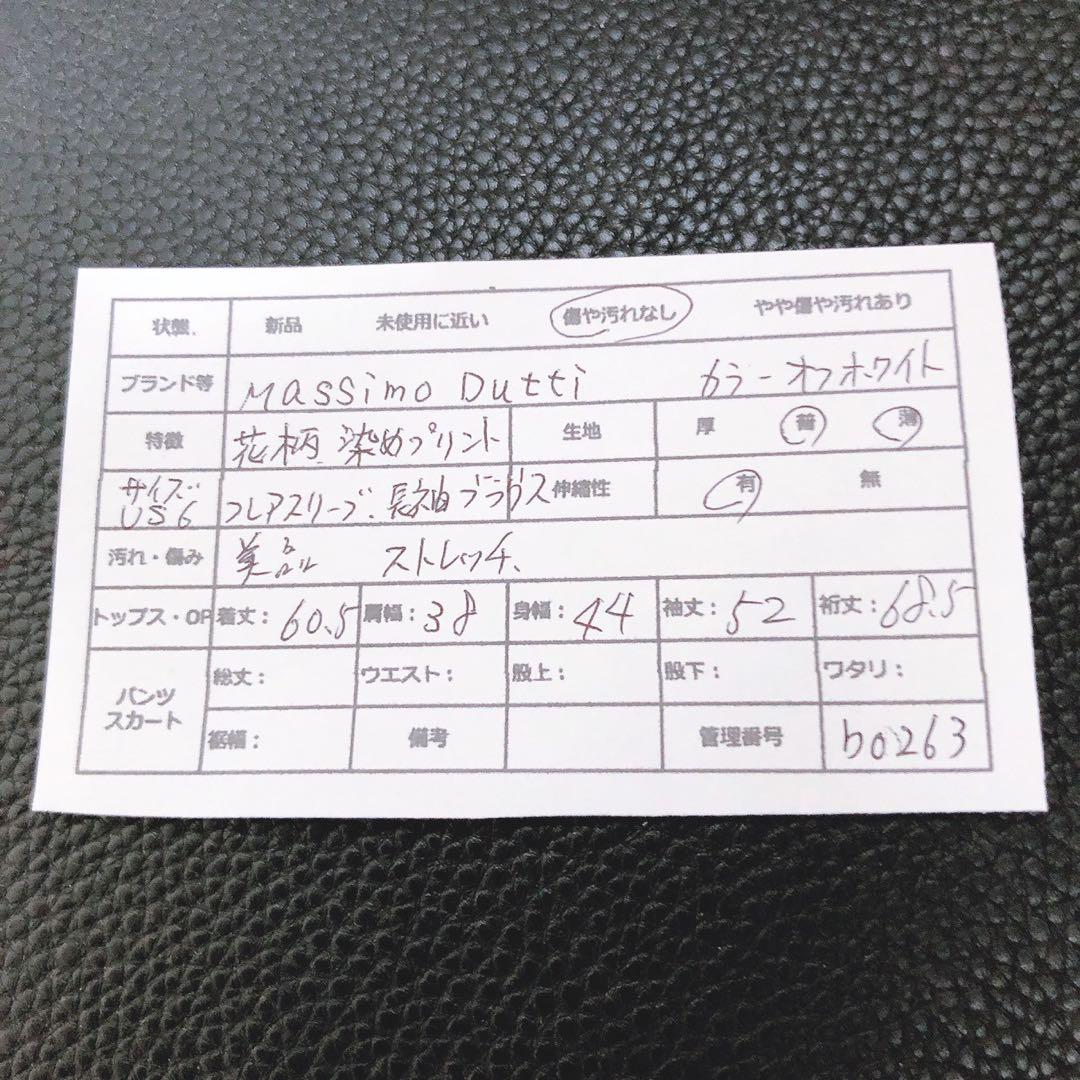 状態. 新品 未使用に近い 傷や汚れなし やや傷や汚れあり
ブランド等 Massimo Dutti カラーオフホワイト
特徴 花柄 染めプリント 生地 厚 普 薄
サイズ US6 フレアスリーブ、長袖ブラウス 伸縮性 有 無
汚れ・傷み 美品 ストレッチ、
トップス・OP 着丈：60.5 肩幅：38 身幅：44 袖丈：52 裄丈：68.5
パンツ スカート 総丈： ウエスト： 股上： 股下： ワタリ：
裾幅： 備考 管理番号 b0263